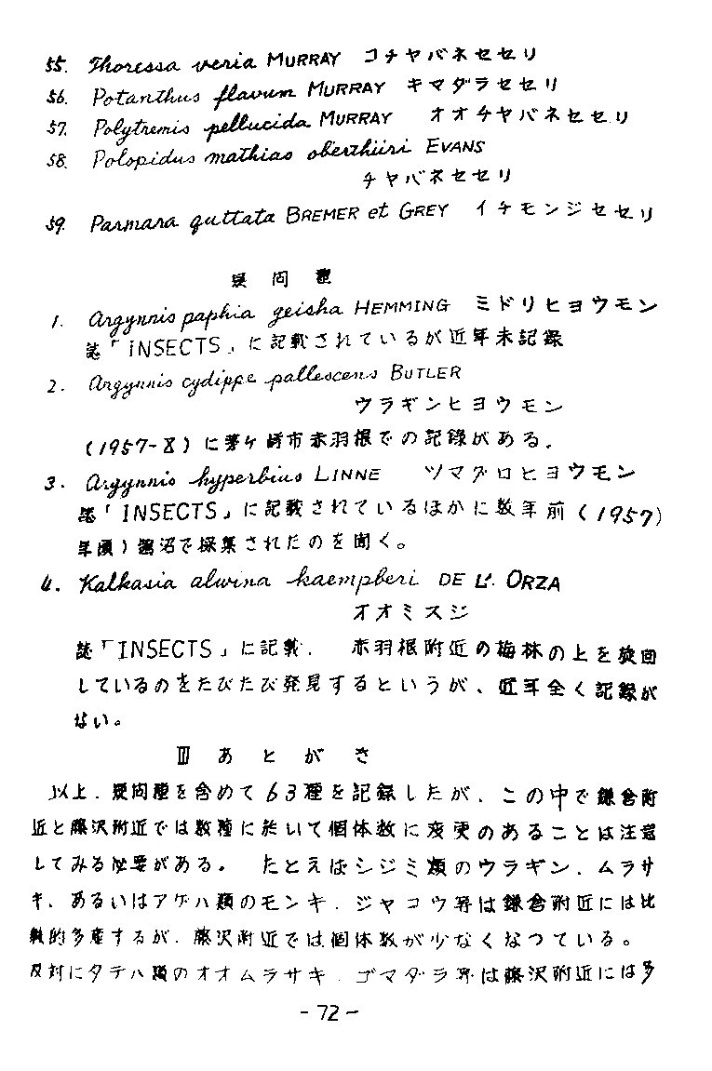 55. Thoressa veria MURRAY コチヤバネセセリ
56. Potanthus flavum MURRAY キマダラセセリ
57. Polytremis pellucida MURRAY オオチヤバネセセリ
58. Polopidus mathias oberthüri EVANS
チヤバネセセリ
59. Parmara guttata BREMER et GREY イチモンジセセリ
疑問種
1. Argynnis paphia geisha HEMMING ミドリヒョウモン
誌「INSECTS」に記載されているが近年未記録
2. Argynnis cydippe pallescens BUTLER
ウラギンヒヨウモン
(1957-8)に茅ケ崎市赤羽根での記録がある.
3. Argynnis hyperbius LINNE ツマグロヒヨウモン
誌「INSECTS」に記載されているほかに数年前(1957)
年頃)鵠沼で採集されたのを聞く。
4. Kalkasia alwina kaempberi DE L'. ORZA
オオミスジ
誌「INSECTS」に記載. 赤羽根附近の梅林の上を旋回
しているのをたびたび発見するというが、近年全く記録が
ない。
Ⅲ あとがき
以上.疑問種を含めて63種を記録したが、この中で鎌倉附
近と藤沢附近では数種に於いて個体数に変更のあることは注意
してみる必要がある。 たとえばシジミ類のウラギン.ムラサ
キ、あるいはアゲハ類のモンキ.ジャコウ等は鎌倉附近には比
較的多産するが.藤沢附近では個体数が少なくなつている。
反対にタテハ類のオオムラサキ.ゴマダラ等は藤沢附近には多
-72-